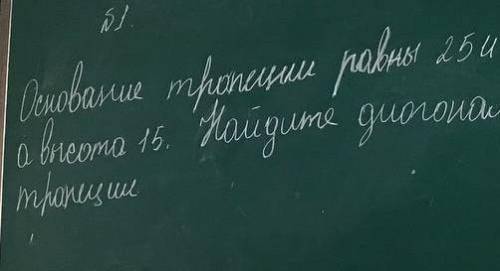 №1.
Основание трапеции равны 25 и
а высота 15. Найдите диогонал
трапеции